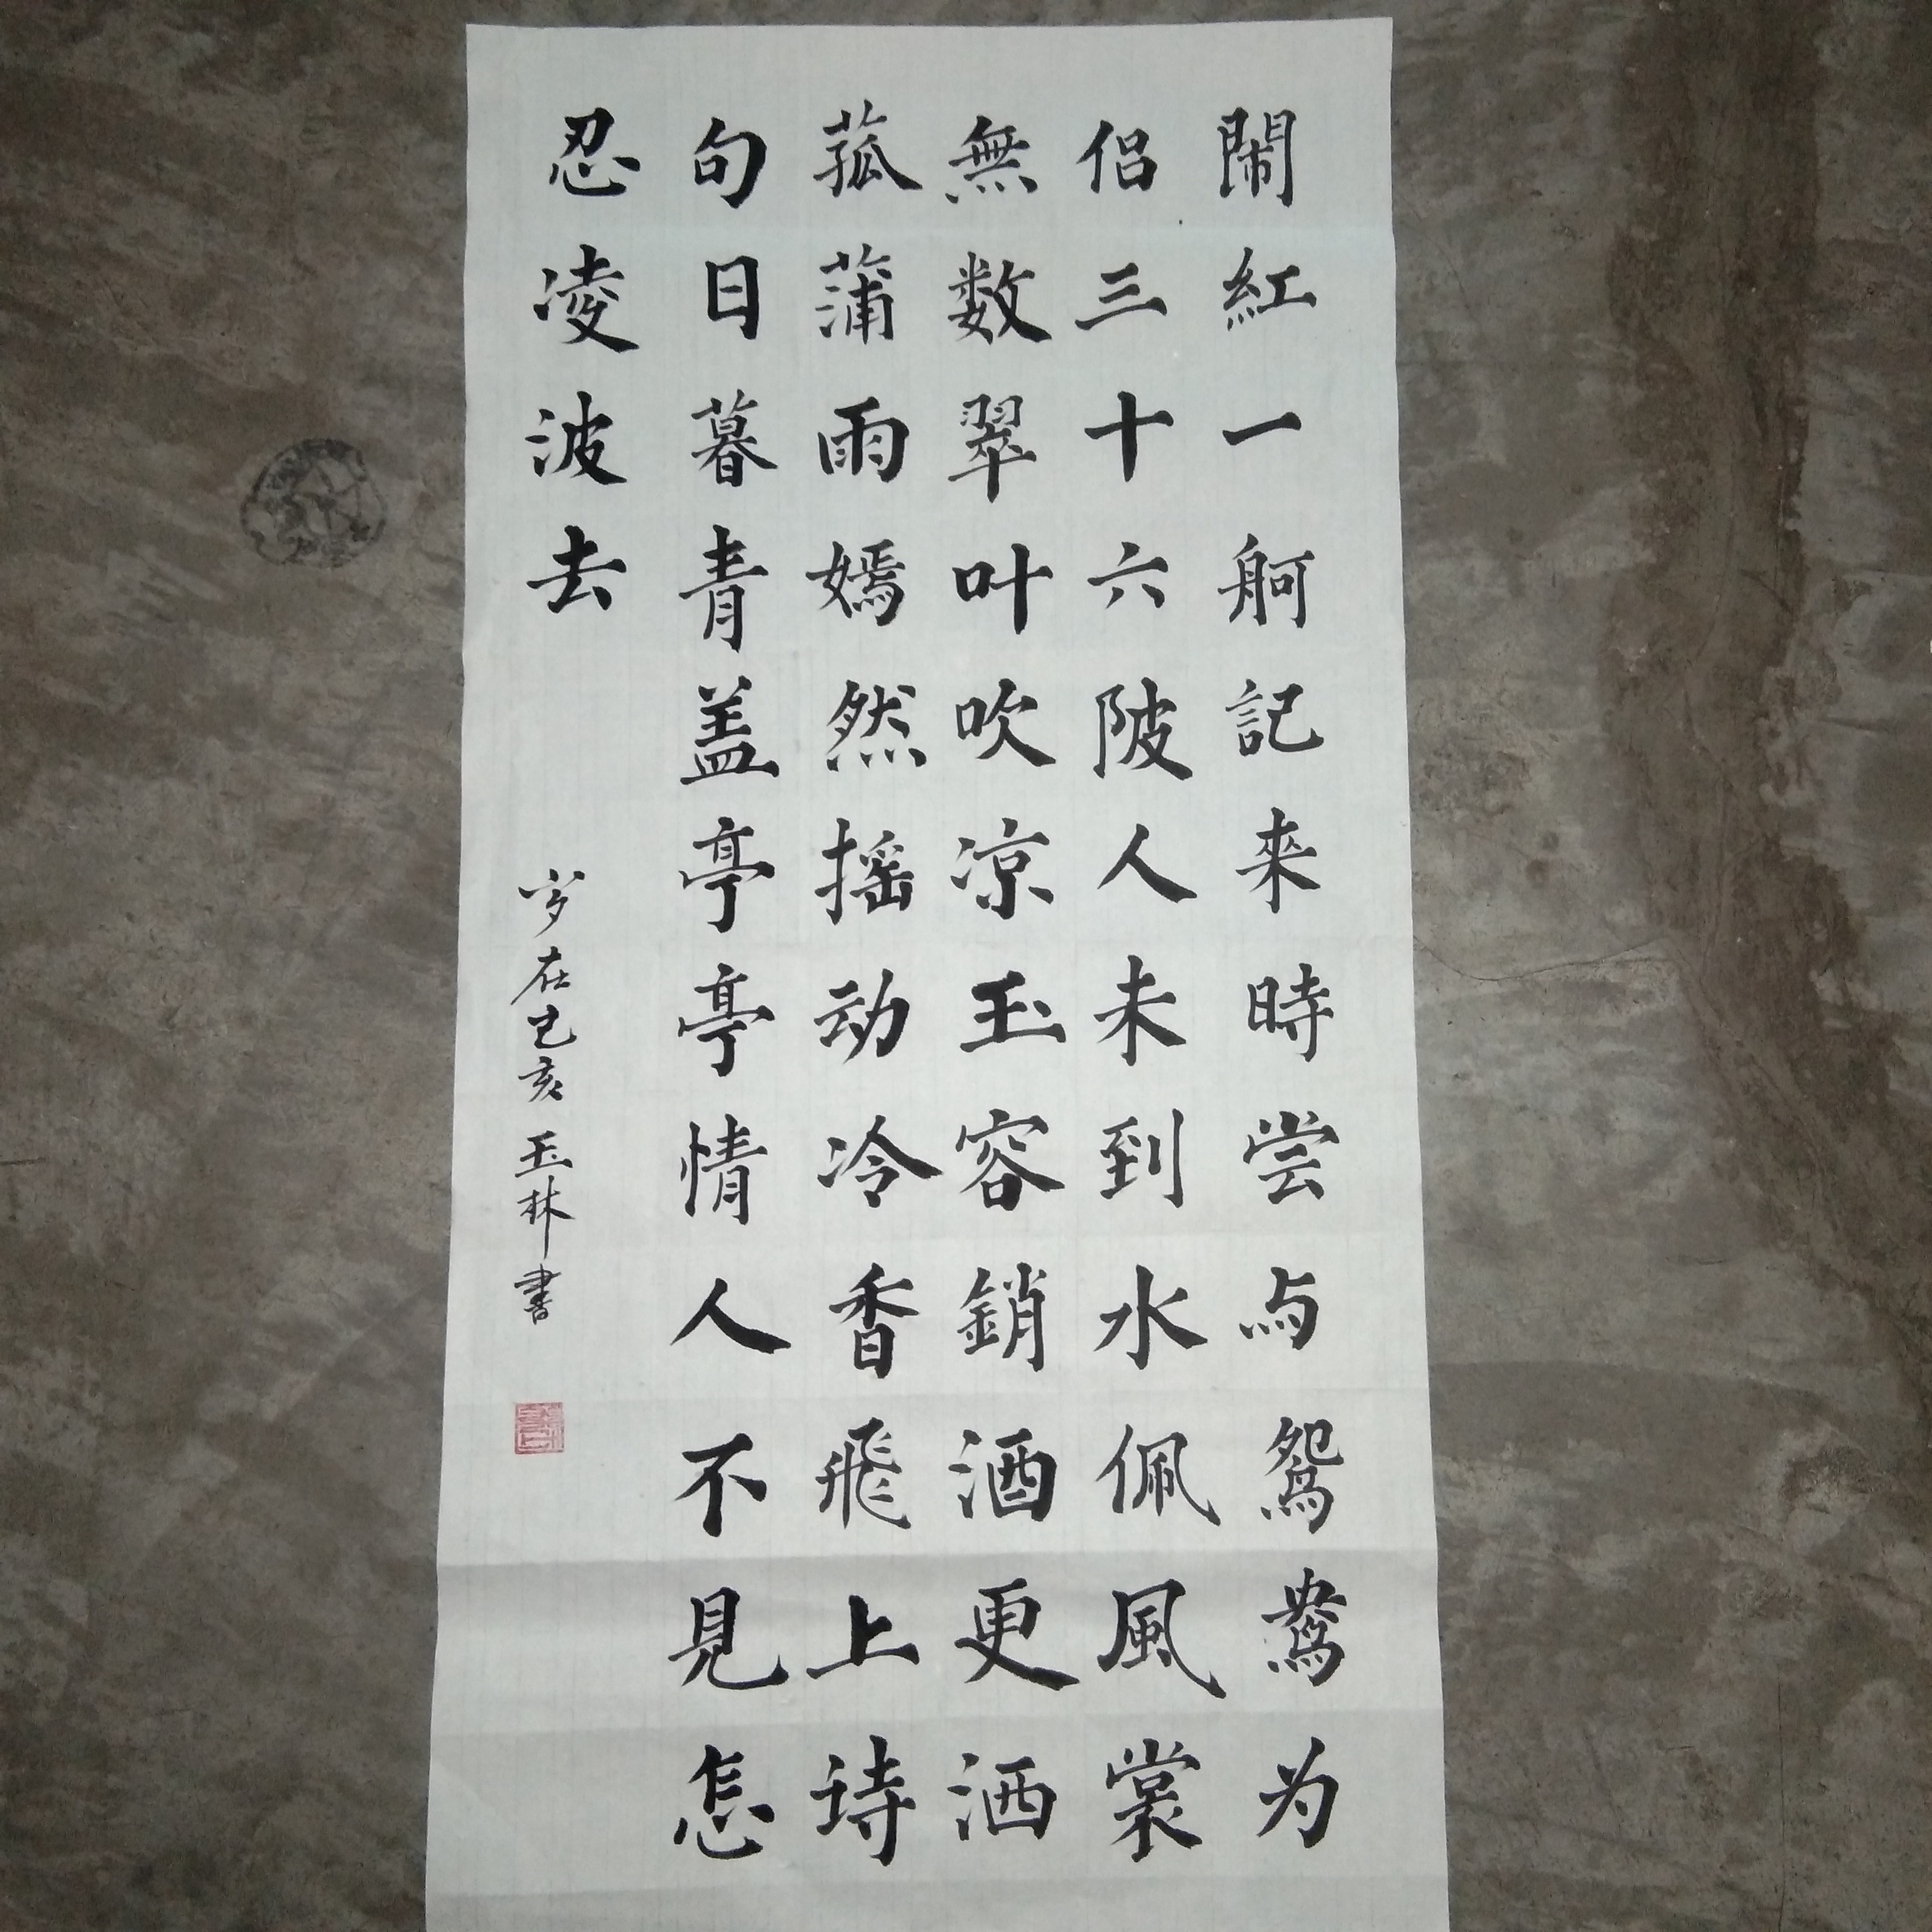 閙紅一舸記來時尝与鴛鴦为
侣三十六陂人未到水佩風裳
無数翠叶吹凉玉容銷酒更洒
菰蒲雨嫣然摇动冷香飛上诗
句日暮青盖亭亭情人不見怎
忍凌波去
岁在己亥玉林書